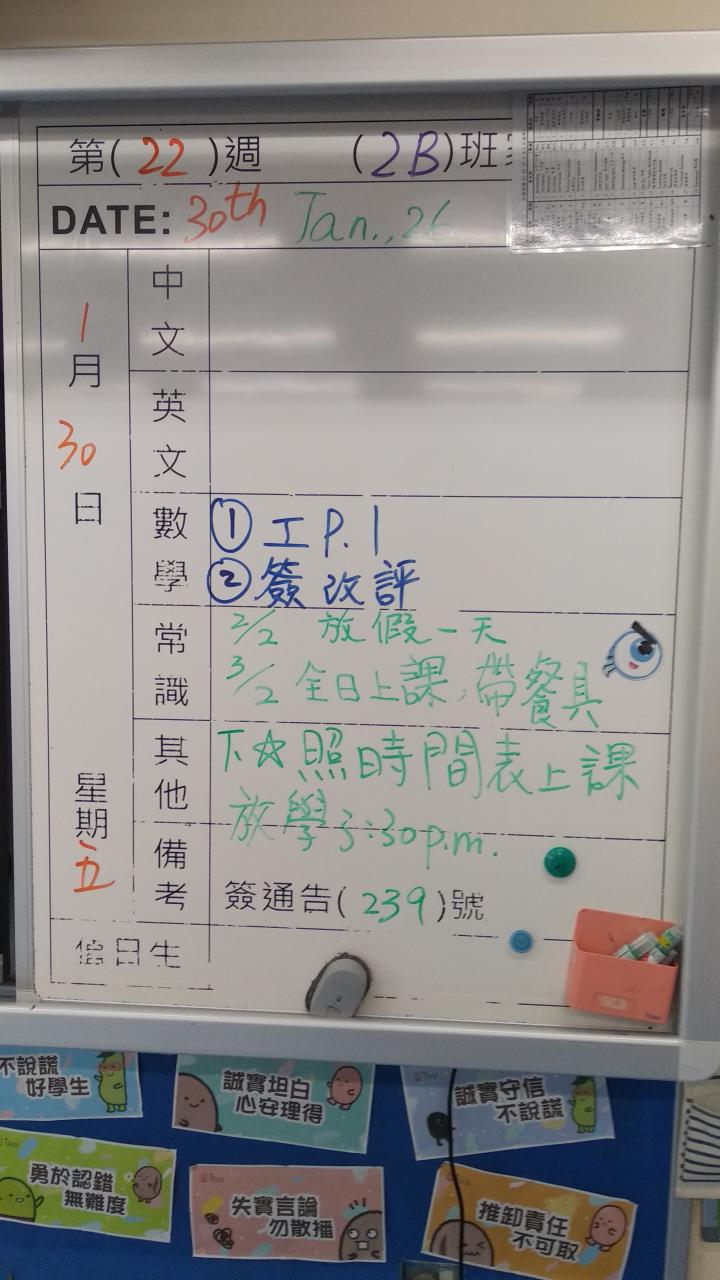 第(22)週 (2B)班
DATE: 30th Jan., 26
1月30日
星期五
中文
英文
數學
① 工 P.1
② 簽改評
常識
2/2 放假一天
3/2 全日上課,帶餐具
其他
下☆照時間表上課
放學3:30p.m.
備考
簽通告(239)號
值日生
不說謊
好學生
誠實坦白
心安理得
誠實守信
不說謊
勇於認錯
無難度
失實言論
勿散播
推卸責任
不可取